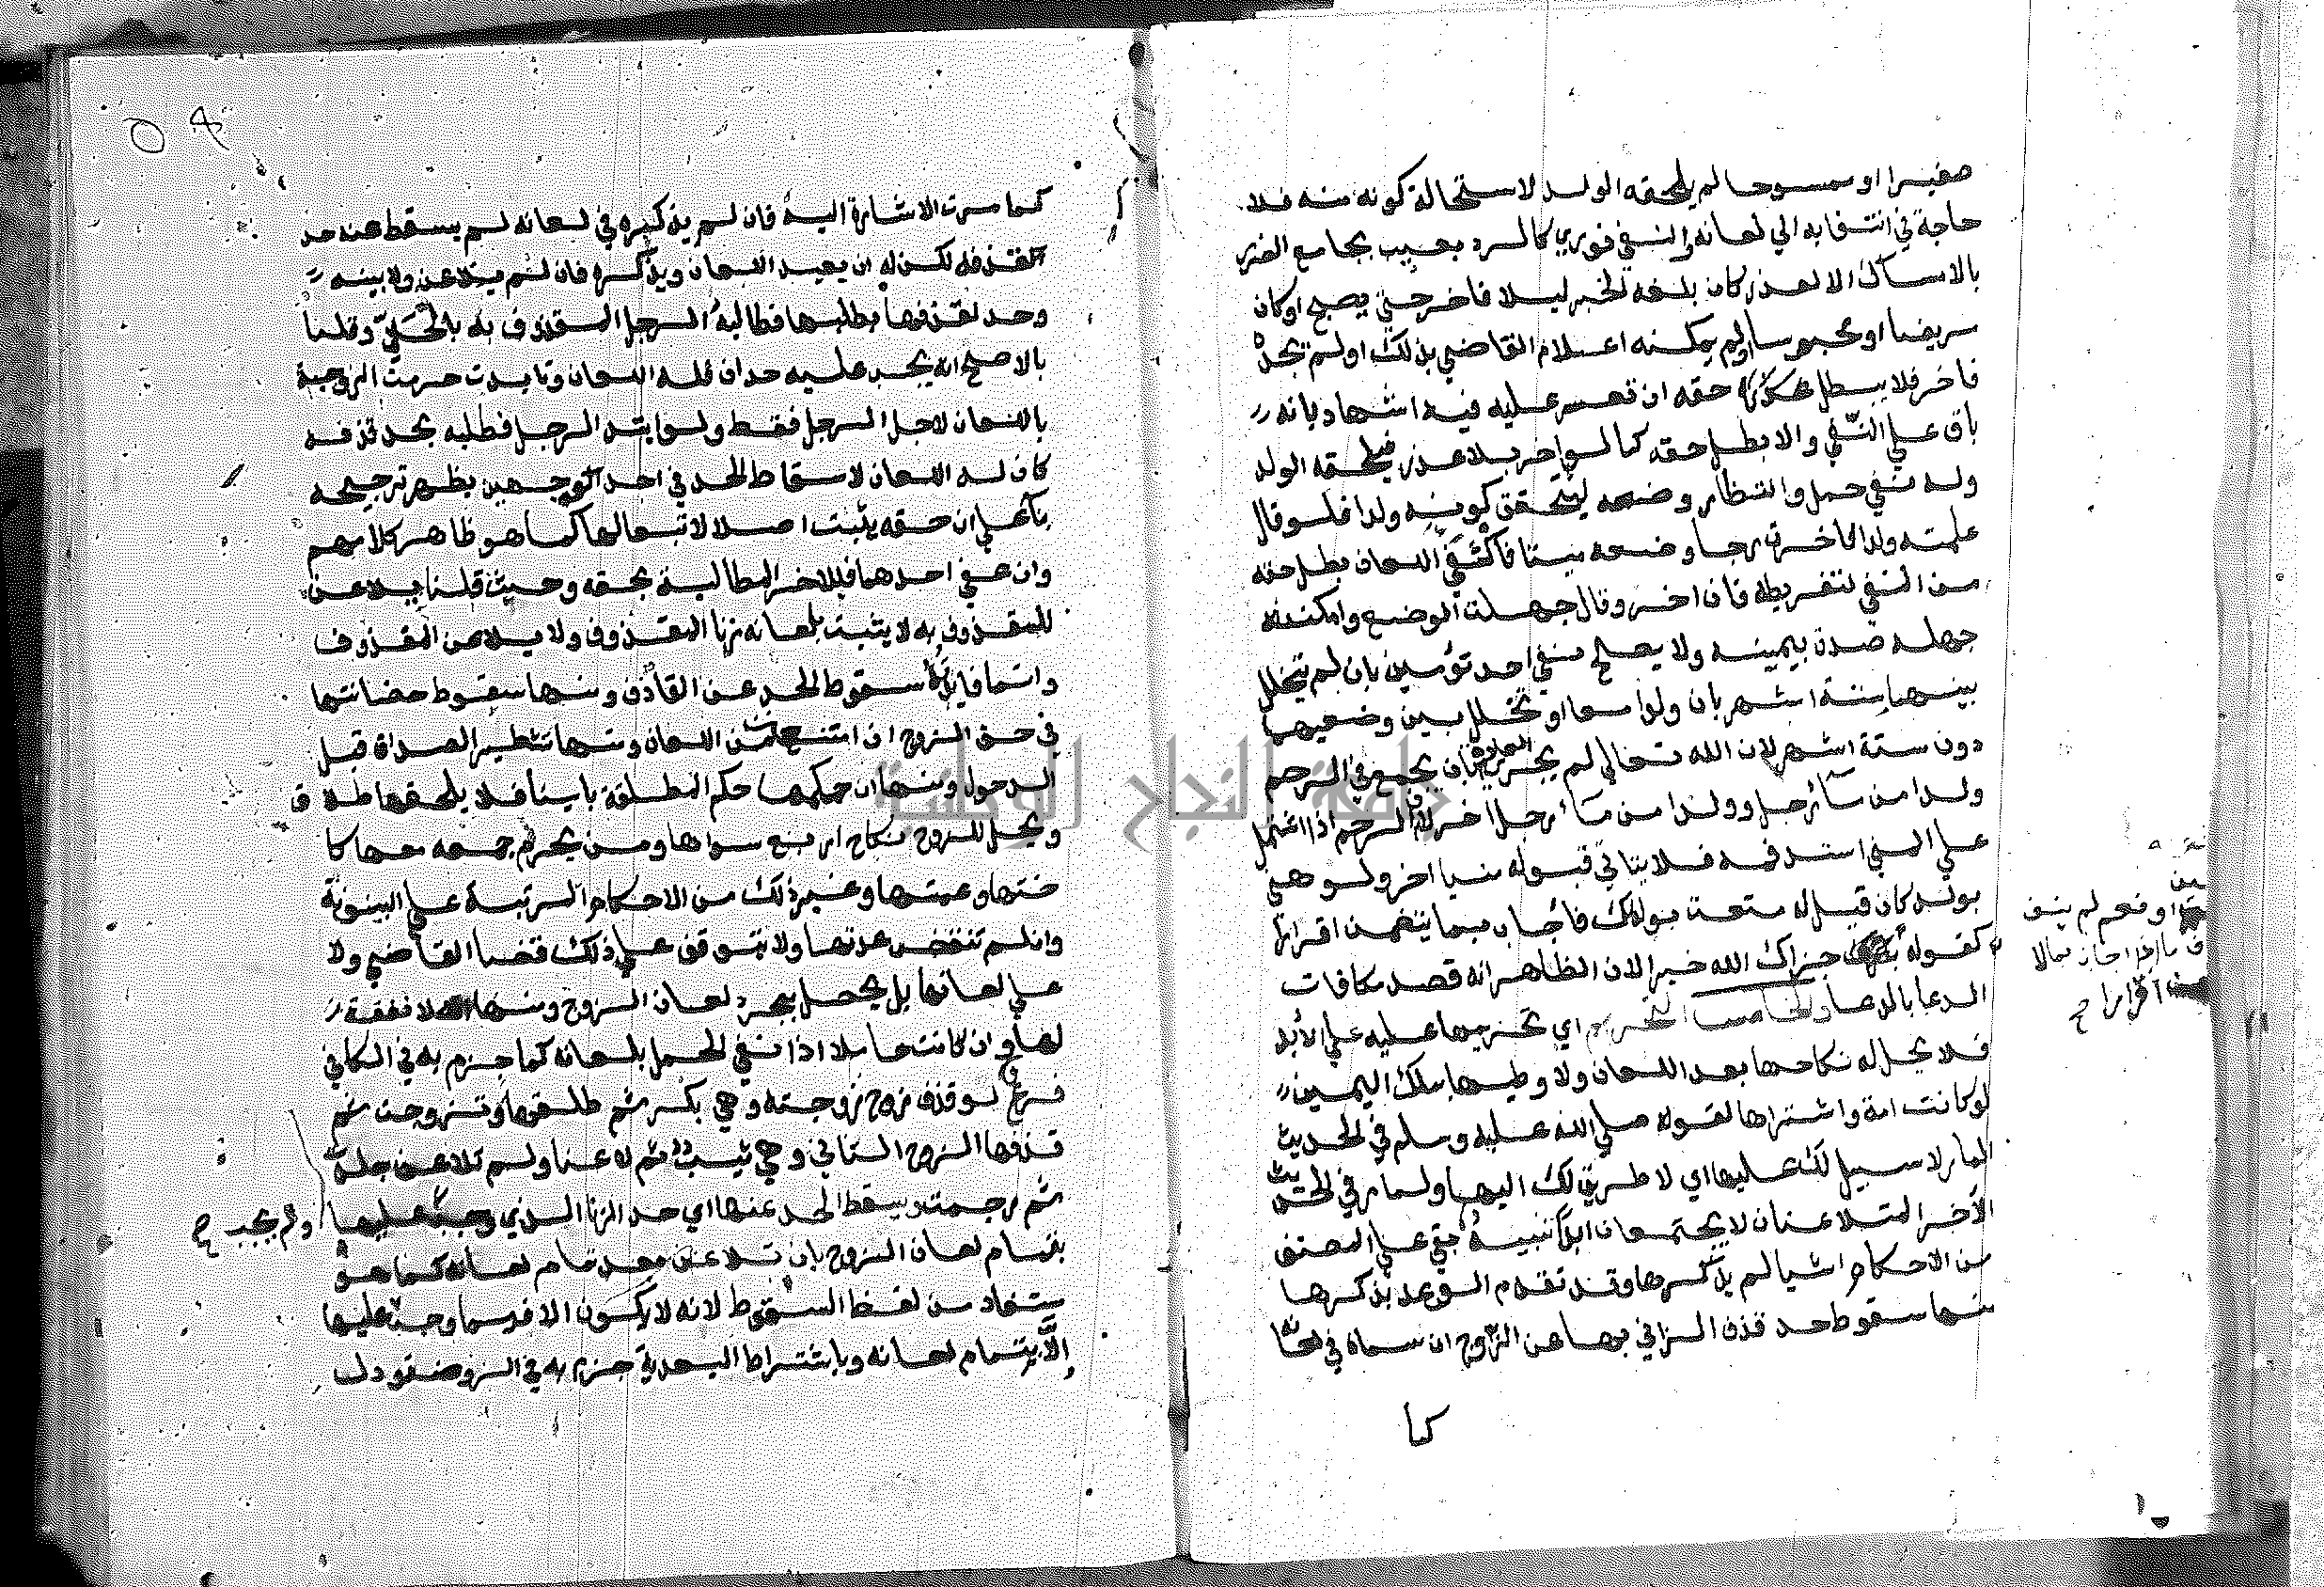 صغيرا او ممسوحا لم يلحقه الولد لاستحالة كونه منه فلا
حاجة في انتفايه الي لعانه والنفي فوري كالرد بعيب بجامع الضرر
بالامساك الا لعذر كان بلغه الخبر ليلا فاخر حتي يصبح او كان
مريضا او محبوسا ولم يمكنه اعلام القاضي بذلك او لم يجد
فاخر فلا يبطل حقه ان تعسر عليه فيه اشهاد بانه
باق علي النفي والا بطل حقه كما لو اخر بلا عذر فيلحقه الولد
وله نفي حمل وانتظار وضعه ليتحقق كونه ولدا فلو قال
علمته ولدا فاخرت رجا وضعه ميتا فاكفي اللعان بطل حقه
من النفي لتفريطه فان اخر وقال جهلت الوضع وامكن
جهله صدق بيمينه ولا يصح نفي احد توءمين بان لم يتخلل
بينهما ستة اشهر بان ولدا معا او تخلل بين وضعيهما
دون ستة اشهر لان الله تعالي لم يجر العادة بان يجمع في الرحم
ولدا من ماء رجل وولدا من ماء رجل اخر لان الرحم اذا اشتمل
علي المني استد فمه فلا يتاتي قبوله منيا اخر ولو هني
بولد كان قيل له متعت بولدك فاجاب بما يتضمن اقرارا
كقوله جزاك الله خيرا لان الظاهر انه قصد مكافات
الدعا بالدعا والخامس التحريم اي تحريمها عليه علي الابد
فلا يحل له نكاحها بعد اللعان ولا وطيها بملك اليمين
لو كانت امة واشتراها لقوله صلي الله عليه وسلم في الحديث
المار لا سبيل لك عليها اي لا طريق لك اليها ولما مر في الحديث
الآخر المتلاعنان لا يجتمعان ابدا تنبيه بقي علي المصنف
من الاحكام اشيا لم يذكرها وقد تقدم الوعد بذكرها
منها سقوط حد قذف الزاني بها عن الزوج ان سماه في لعانه
كما
او نعم لم ينف
كما مرت الاشارة اليه فان لم يذكره في لعانه لم يسقط عنه حد
القذف لكن له ان يعيد اللعان ويذكره فان لم يتلاعن ولا بينة
وحد لقذفها بطلبها فطالبه الرجل المقذوف به بالحد وقلنا
بالاصح انه يجب عليه حدان فله اللعان وتابدت حرمت الزوجية
باللعان لاجل الرجل فقط ولو ابتدا الرجل فطلبه بحد قذفه
كان له اللعان لاسقاط الحد في احد الوجهين يظهر ترجيحه
بنا علي ان حقه يثبت اصلا لا تبعا لها كما هو ظاهر كلامهم
وان عفي احدهما فللاخر المطالبة بحقه وحيث قلنا يلاعن
للمقذوف به لا يثبت بلعانه زنا المقذوف ولا يلاعن المقذوف
وانما فايدته سقوط الحد عن القاذف ومنها سقوط حضانتها
في حق الزوج ان امتنعت من اللعان ومنها تشطير الصداق قبل
الدخول ومنها ان حكمها حكم المطلقة باينا فلا يلحقها طلاق
ويحل للزوج نكاح اربع سواها ومن يحرم جمعه معها كا
ختها وعمتها وغير ذلك من الاحكام المرتبة علي البينونة
وان لم تنقض عدتها ولا يتوقف علي ذلك قضا القاضي ولا
علي لعانها بل يحصل بمجرد لعان الزوج ومنها لا نفقة
لها وان كانت حاملا اذا نفي الحمل بلعانه كما جزم به في الكافي
فرع لو قذف زوج زوجته وهي بكر ثم طلقها وتزوجت ثم
قذفها الزوج الثاني وهي ثيب ثم لاعنا ولم تلاعن جلدت
ثم رجمت ويسقط الحد عنها اي حد الزنا الذي وجب عليها
ولم يجب ح
بتمام لعان الزوج بان تلاعن بعد تمام لعانه كما هو
مستفاد من لفظ السقوط لانه لا يكون الا فيما وجب عليها
الا بتمام لعانه وباشتراط البعدية جزم به في الروض